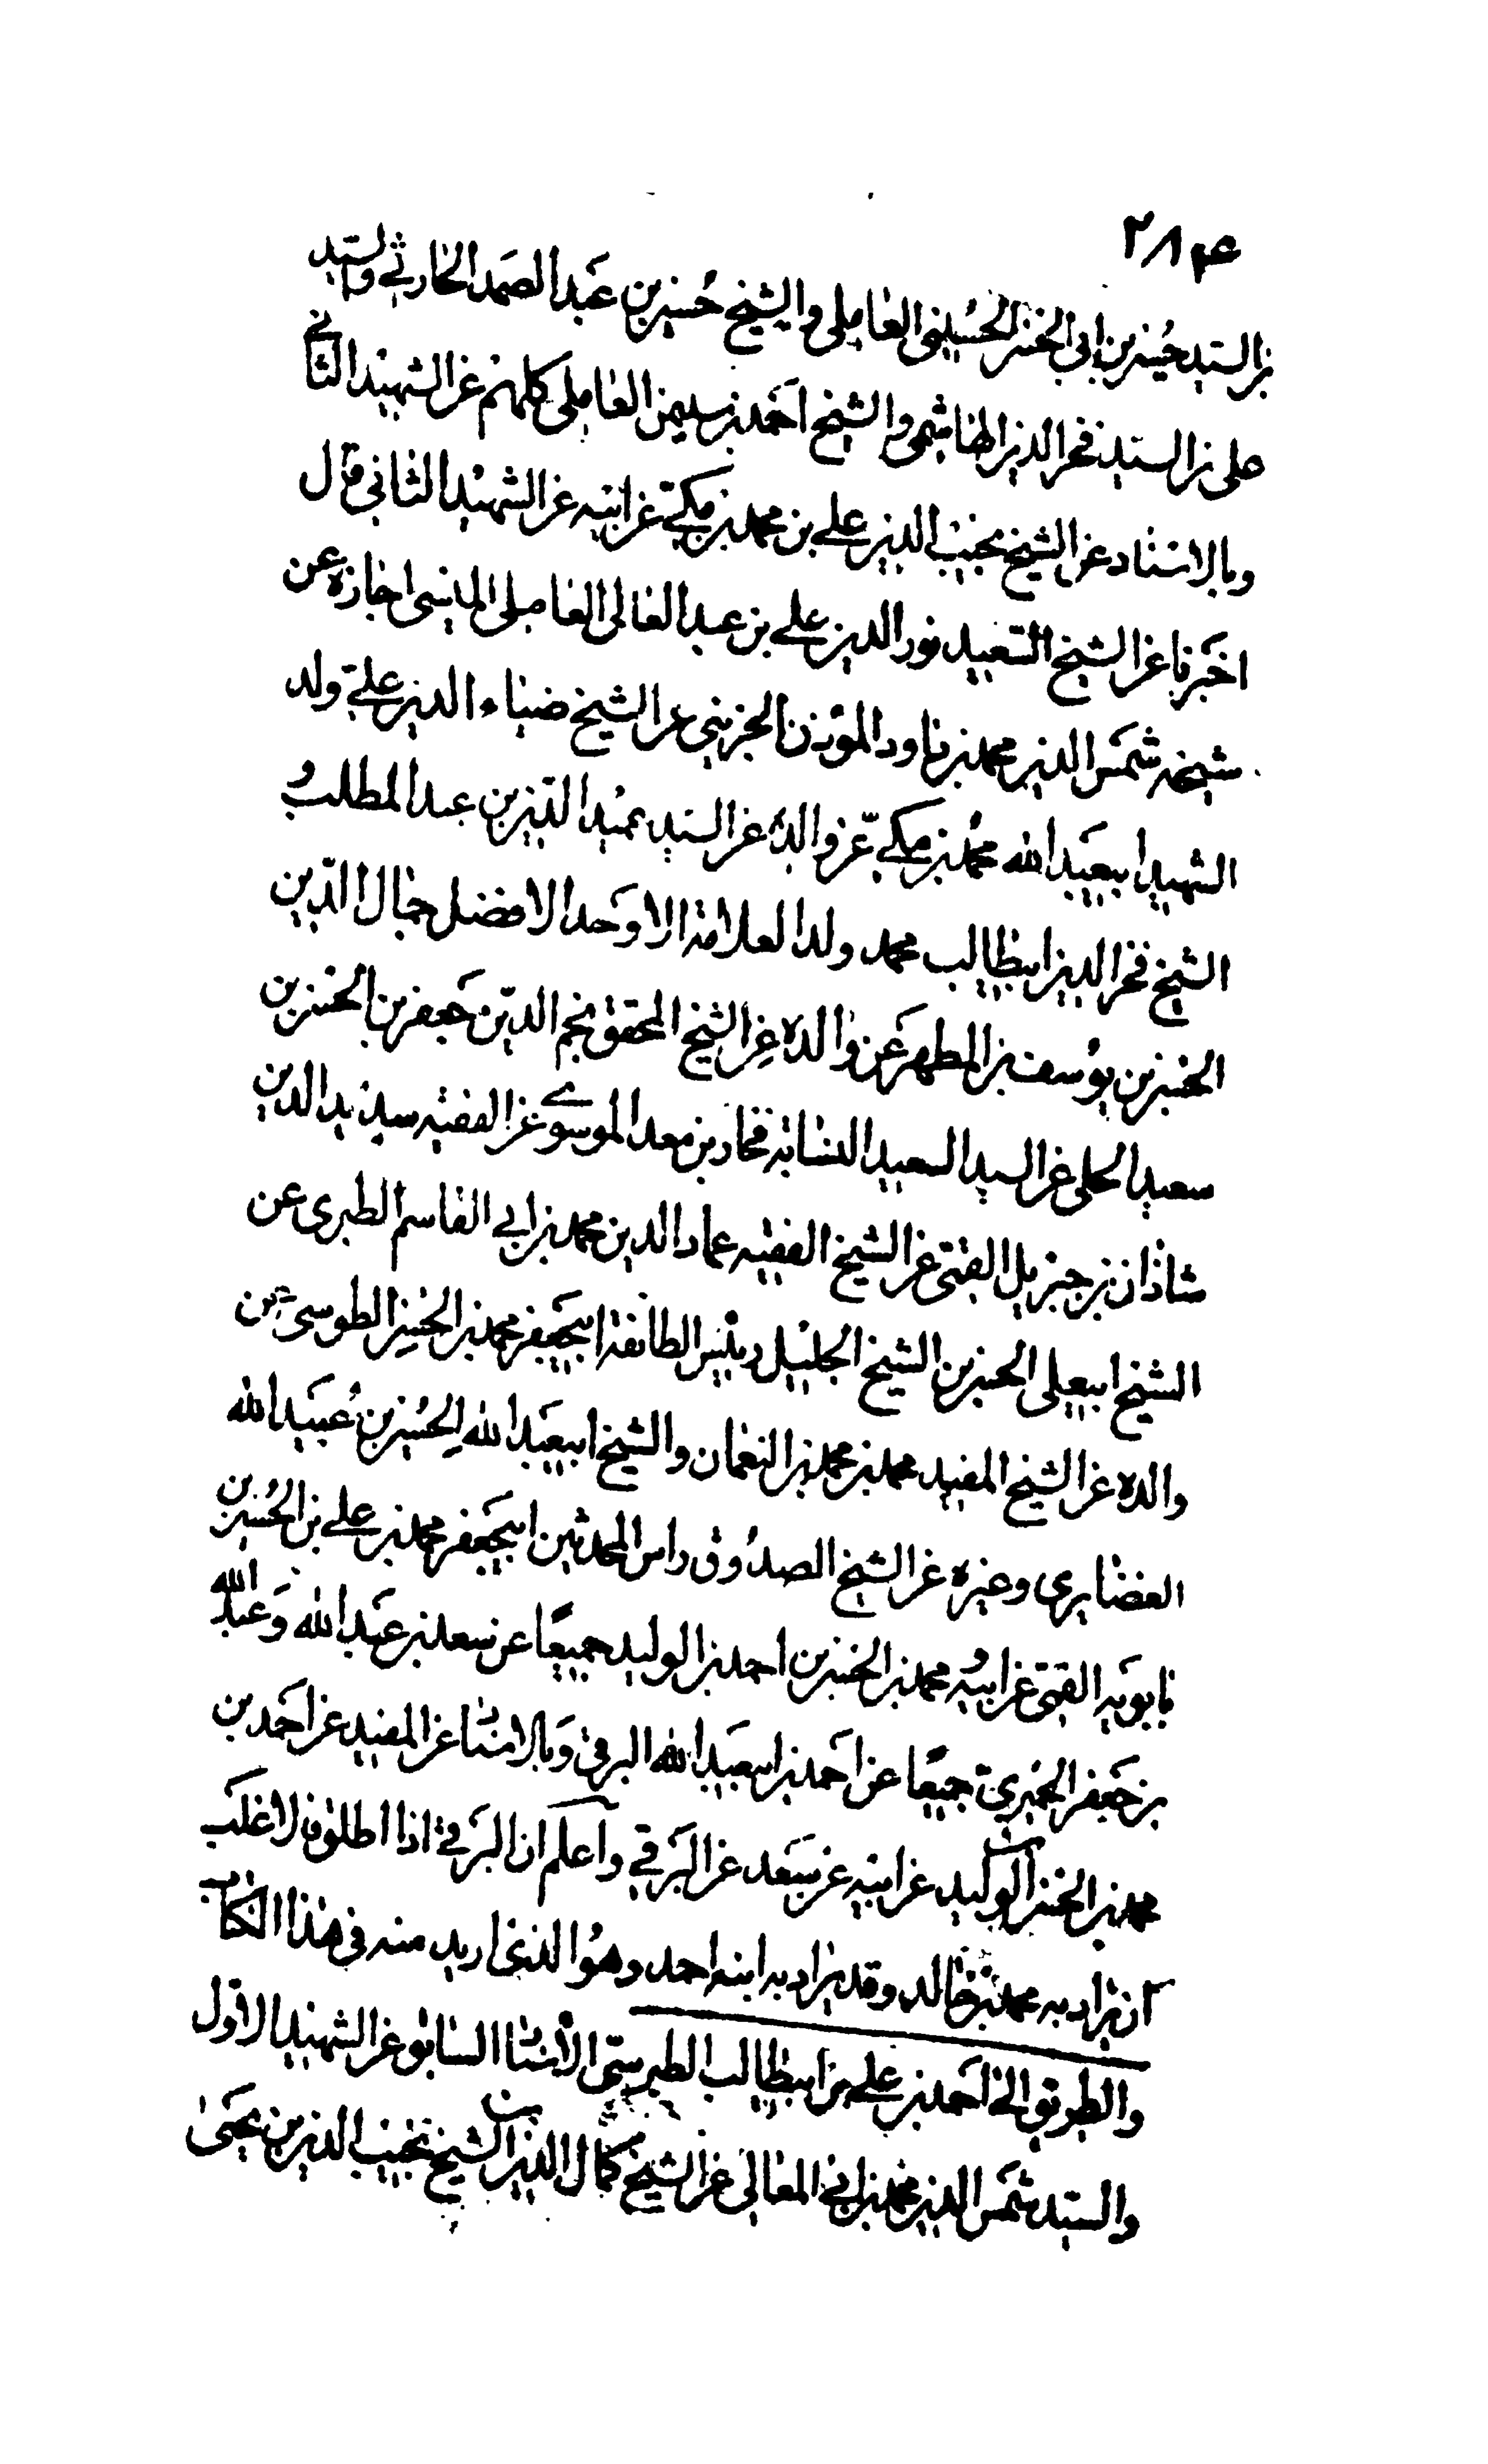 ٢٨٤
بن السيد حسين بن ابي الحسن الحسيني العاملي والشيخ حسين بن عبد الصمد الحارثي والسيد
علي بن السيد فخر الدين الهاشمي والشيخ احمد بن سليمن العاملي كلهم عن الشهيد الثاني
وبالاسناد عن الشيخ نجيب الدين علي بن محمد بن مكي عن ابيه عن الشهيد الثاني قال
اخبرنا عن الشيخ السعيد نور الدين علي بن عبد العالي العاملي الميسي اجازة عن
شيخه شمس الدين محمد بن داود المؤذن الجزيني عن الشيخ ضياء الدين علي ولد
الشهيد ابيعبد الله محمد بن مكي عن والده عن السيد عميد الدين بن عبد المطلب و
الشيخ فخر الدين ابيطالب محمد ولد العلامة الاوحد الافضل جمال الدين
الحسن بن يوسف بن المطهر عن والده عن الشيخ المحقق نجم الدين جعفر بن الحسن بن
سعيد الحلي عن السيد السعيد النسابة فخار بن معد الموسوي عن الفقيه سديد الدين
شاذان بن جبرئيل القمي عن الشيخ الفقيه عماد الدين محمد بن ابي القاسم الطبري عن
الشيخ ابيعلي الحسن بن الشيخ الجليل رئيس الطائفة ابيجعفر محمد بن الحسن الطوسي عن
والده عن الشيخ المفيد محمد بن محمد بن النعمان والشيخ ابيعبد الله الحسين بن عبيد الله
الغضايري وغيره عن الشيخ الصدوق راس المحدثين ابيجعفر محمد بن علي بن الحسين بن
بابويه القمي عن ابيه و محمد بن الحسن بن احمد بن الوليد جميعًا عن سعد بن عبد الله وعبد الله
بن جعفر الحميري جميعًا عن احمد بن ابيعبد الله البرقي وبالاسناد عن المفيد عن احمد بن
محمد بن الحسن بن الوليد عن ابيه عن سعد عن البرقي واعلم ان البرقي اذا اطلق فالاغلب
ان يراد به محمد بن خالد وقد يراد به ابنه احمد وهو الذي اريد منه في هذا الكتاب
والطريق الى احمد بن علي بن ابيطالب الطبرسي الاسناد السابق عن الشهيد الاول
والسيد شمس الدين محمد بن ابي المعالي عن الشيخ كمال الدين بن الشيخ نجيب الدين بن يحيى